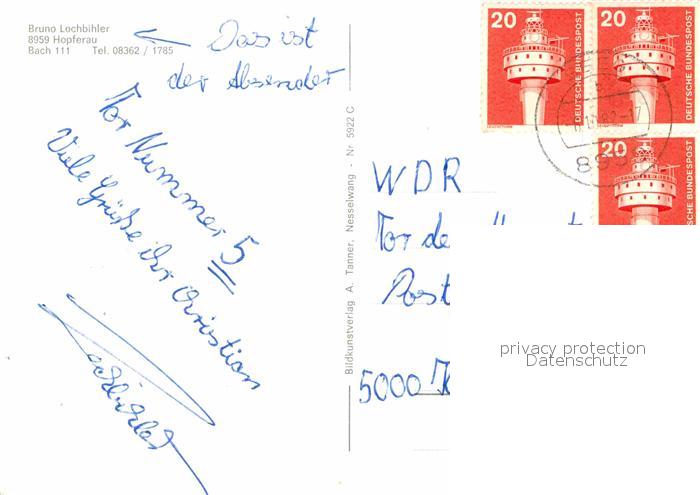 Bruno Lochbihler
8959 Hopferau
Bach 111 Tel. 08362 / 1785
← Das ist
der Absender
Tor Nummer 5
Viele Grüße ihr Christian
Lochbihler
Bildkunstverlag A. Tanner, Nesselwang - Nr 5922 C
20
DEUTSCHE BUNDESPOST
20
DEUTSCHE BUNDESPOST
20
DEUTSCHE BUNDESPOST
WDR
Tor de
Post
5000 K
privacy protection
Datenschutz